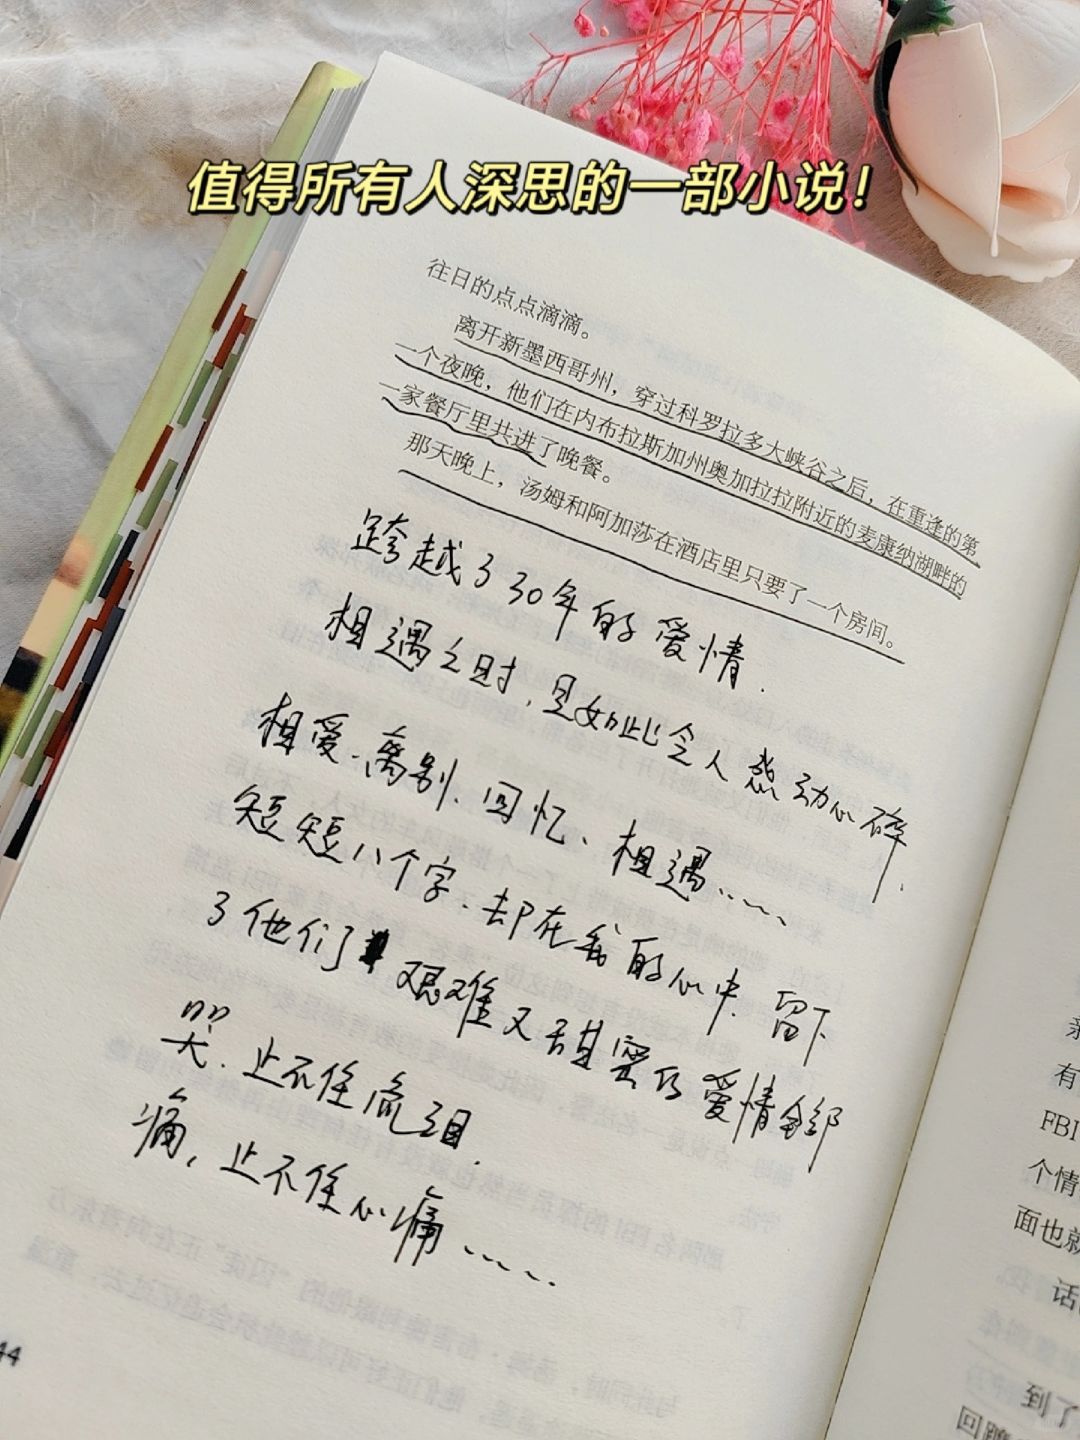 值得所有人深思的一部小说！
往日的点点滴滴。
离开新墨西哥州，穿过科罗拉多大峡谷之后，在重逢的第
一个夜晚，他们在内布拉斯加州奥加拉拉附近的麦康纳湖畔的
一家餐厅里共进了晚餐。
那天晚上，汤姆和阿加莎在酒店里只要了一个房间。
跨越了30年的爱情.
相遇之时,是如此令人感动心碎.
相爱、离别、回忆、相遇……
短短八个字、却在我的心中留下
了他们艰难又甜蜜的爱情全部
哭、止不住流泪.
痛、止不住心痛……
44
亲
有
FBI
个情
面也就
话
到了
回